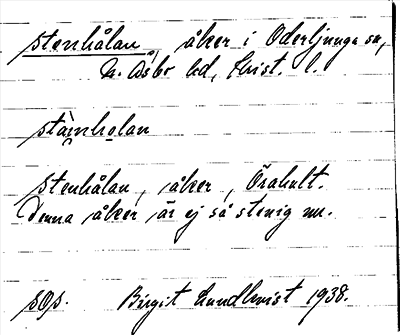 stenhålan, åker i Oderljunga sn,
N. Åsbo hd, Krist. l.
stàinholan
stenhålan, åker, Örahult.
Denna åker är ej så stenig nu.
sOp. Birgit Lundkvist 1938.